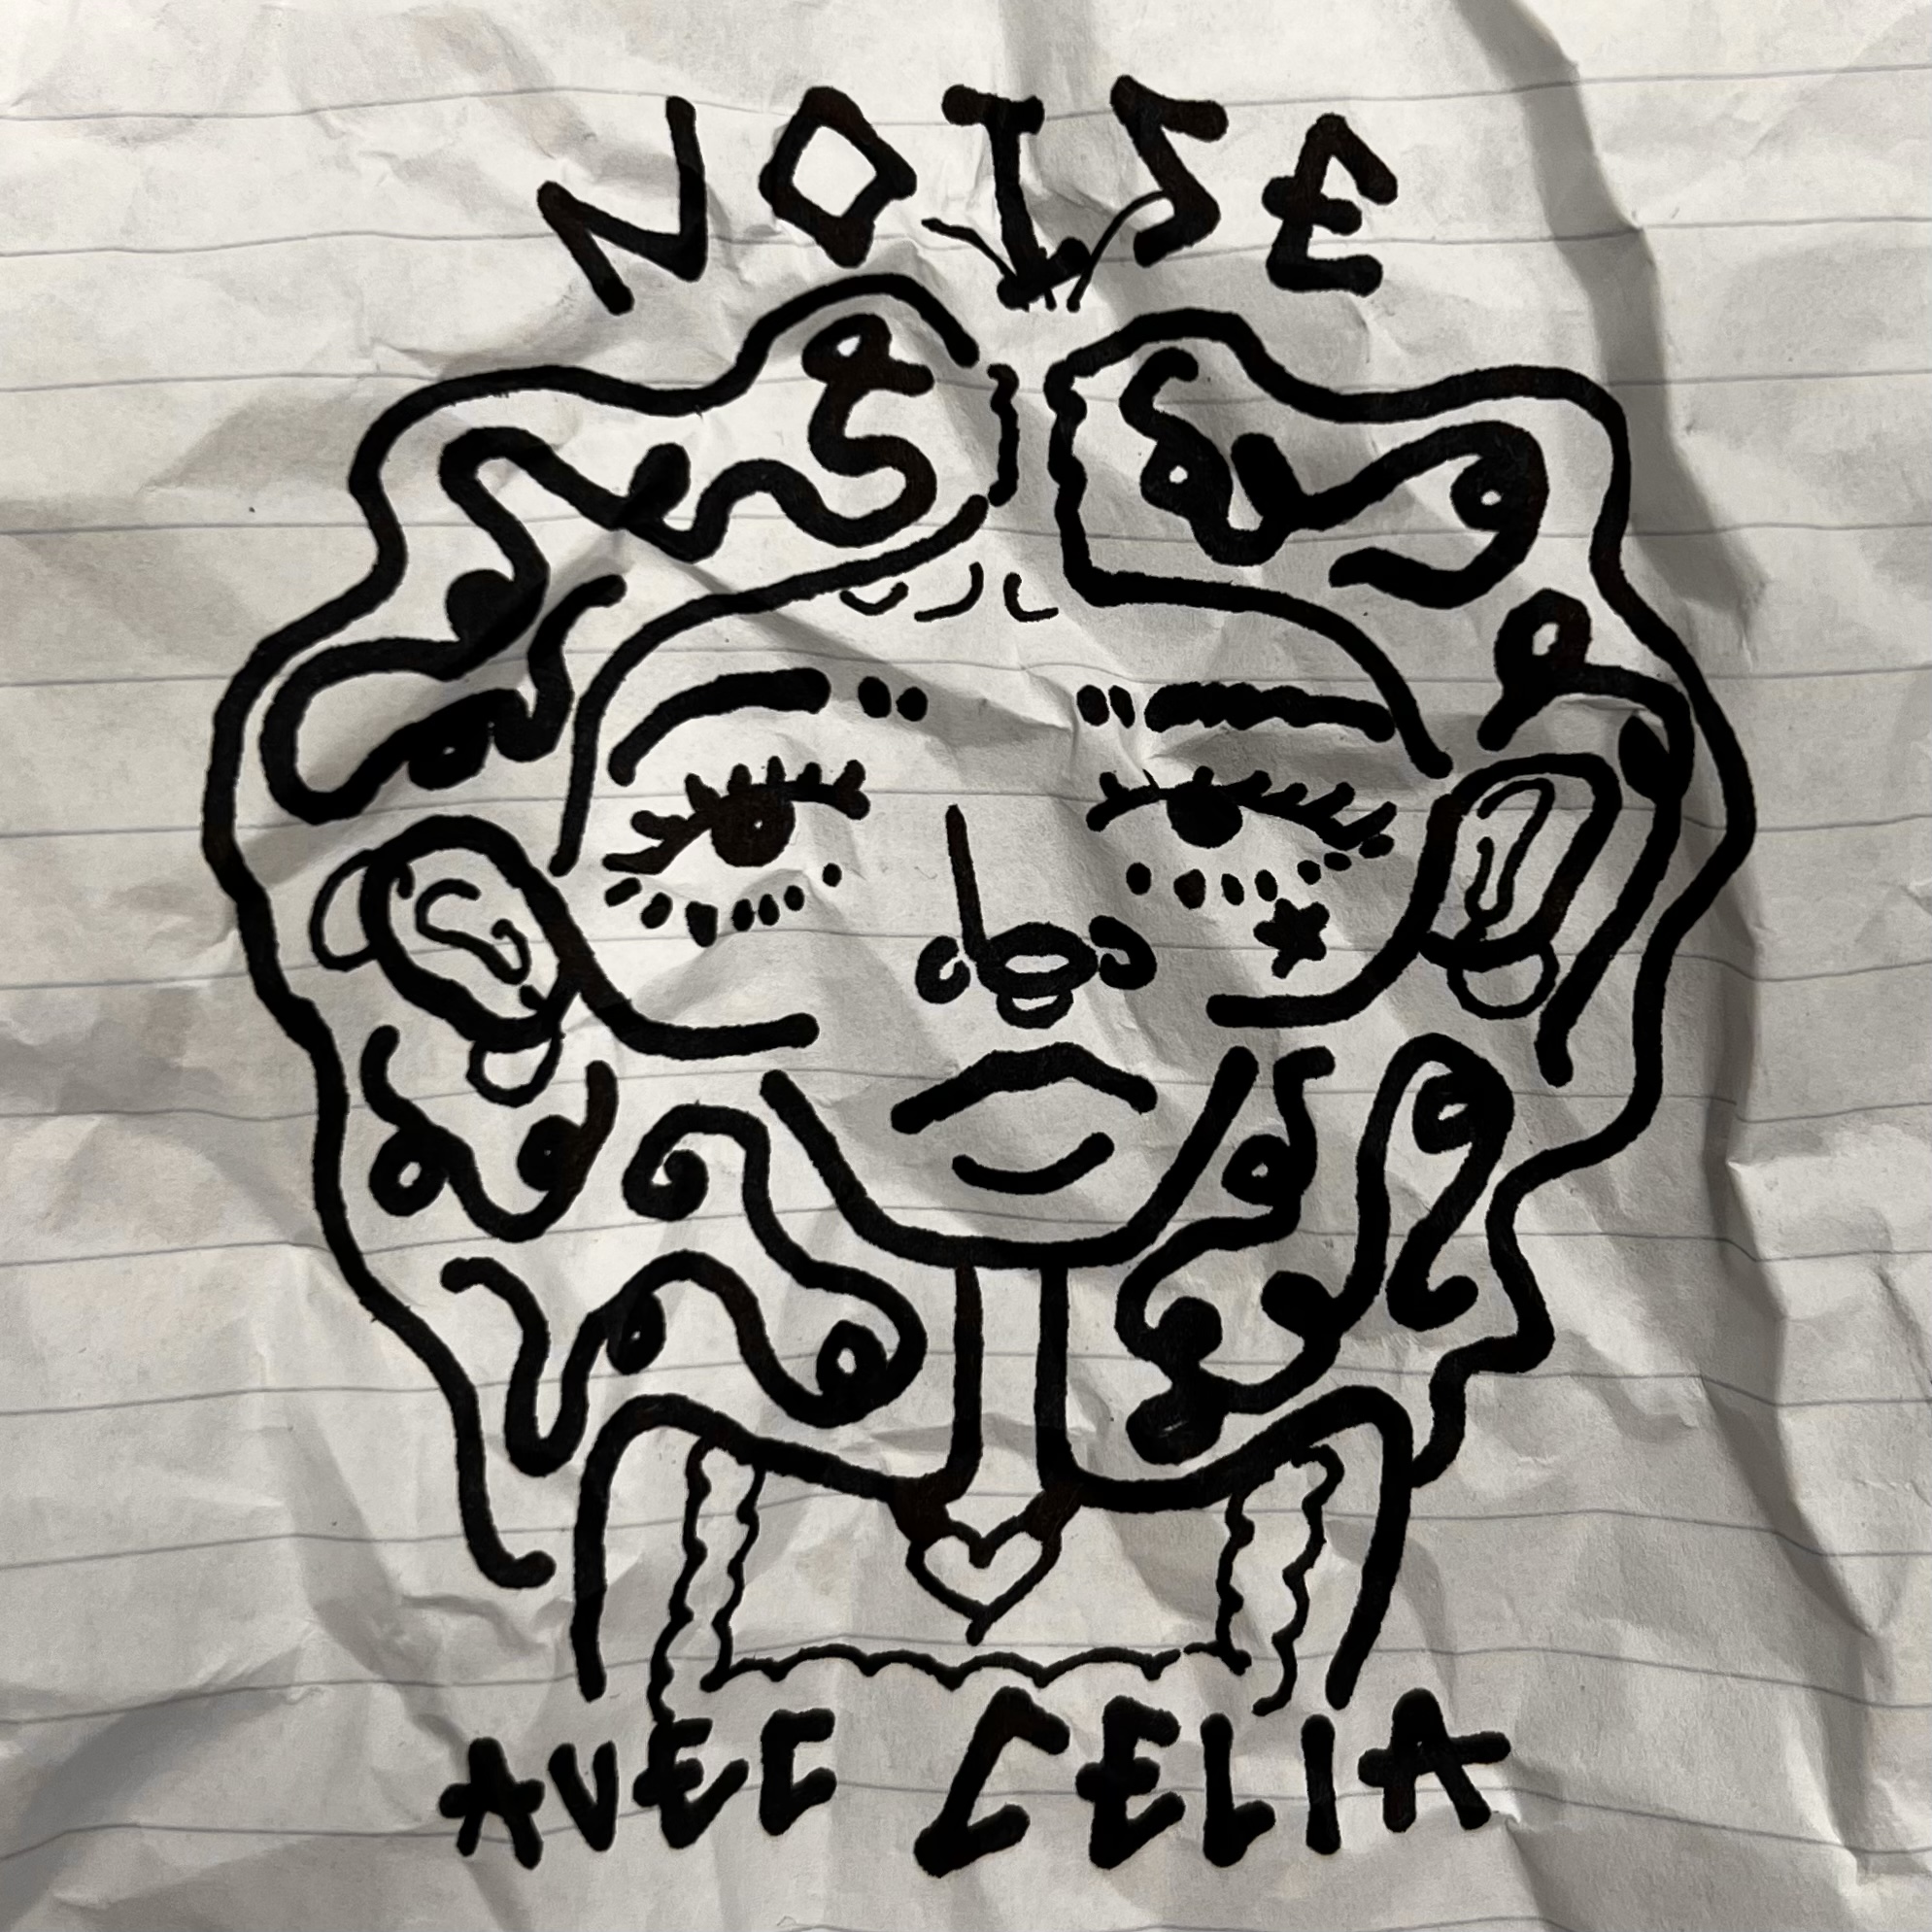 NOISE
AVEC CELIA